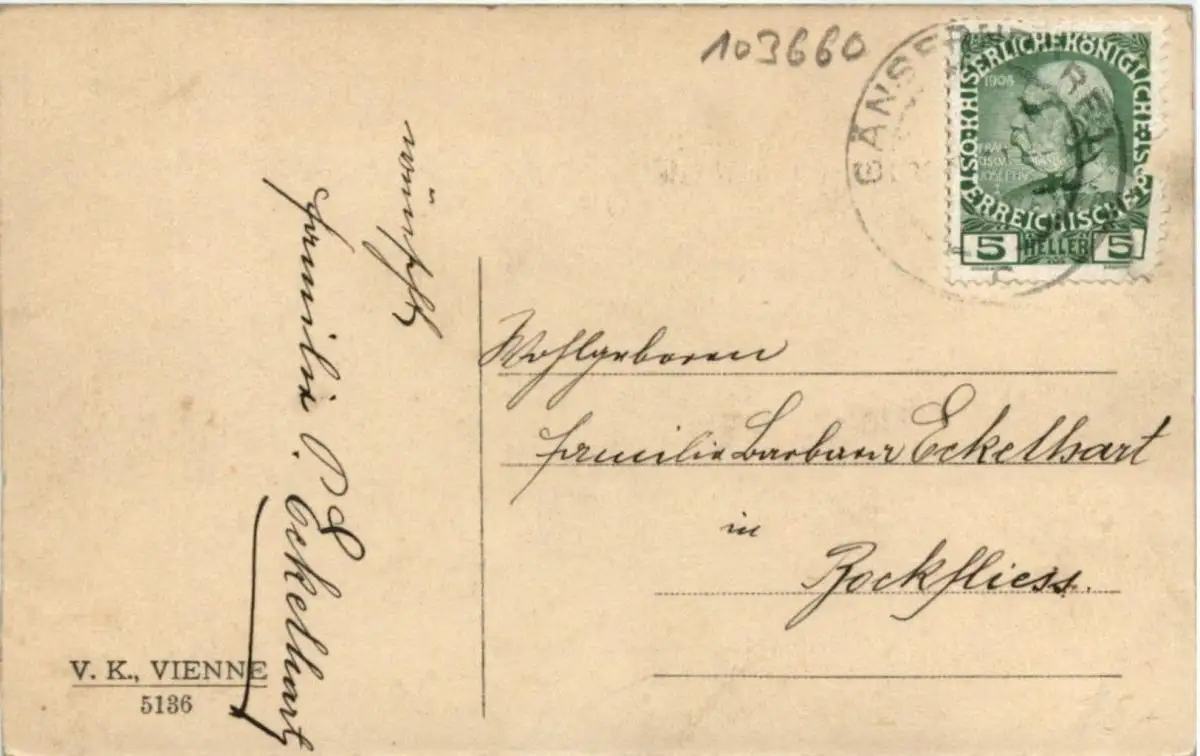 103660
GÄNSERN
KAISERLICHE KÖNIGLICHE ÖSTERREICHISCHE
1908
5 HELLER 5
wünscht
Familie
Eckelhart
Wohlgeboren
Familie Barbara Eckelhart
in
Bockfliess.
V. K., VIENNE
5136